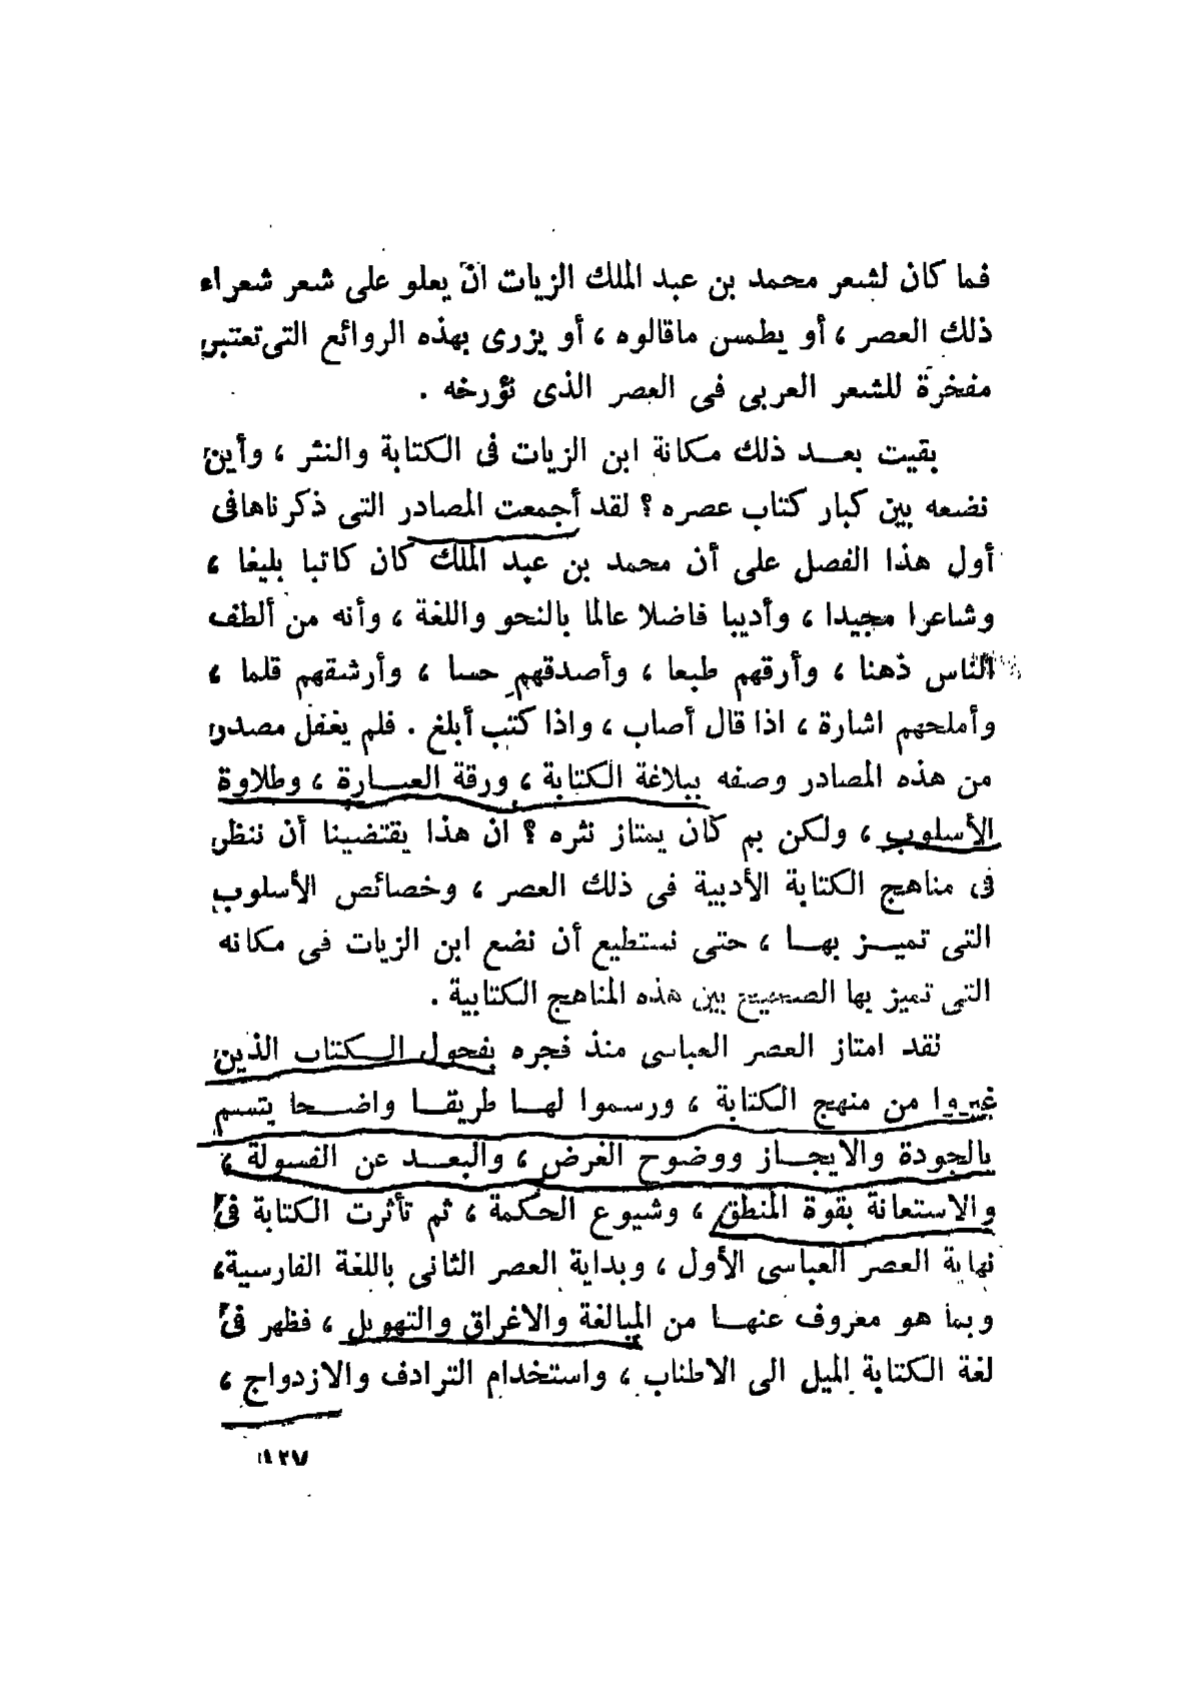 فما كان لشعر محمد بن عبد الملك الزيات أن يعلو على شعر شعراء
ذلك العصر ، أو يطمس ماقالوه ، أو يزرى بهذه الروائع التى تعتبر
مفخرة للشعر العربى فى العصر الذى نؤرخه .
بقيت بعــد ذلك مكانة ابن الزيات فى الكتابة والنثر ، وأين
نضعه بين كبار كتاب عصره ؟ لقد أجمعت المصادر التى ذكرناها فى
أول هذا الفصل على أن محمد بن عبد الملك كان كاتبا بليغا ،
وشاعرا مجيدا ، وأديبا فاضلا عالما بالنحو واللغة ، وأنه من ألطف
الناس ذهنا ، وأرقهم طبعا ، وأصدقهم حسا ، وأرشقهم قلما ،
وأملحهم اشارة ، اذا قال أصاب ، واذا كتب أبلغ . فلم يغفل مصدر
من هذه المصادر وصفه ببلاغة الكتابة ، ورقة العبــارة ، وطلاوة
الأسلوب ، ولكن بم كان يمتاز نثره ؟ ان هذا يقتضينا أن ننظر
فى مناهج الكتابة الأدبية فى ذلك العصر ، وخصائص الأسلوب
التى تميــز بهــا ، حتى نستطيع أن نضع ابن الزيات فى مكانه
التى تميز بها الصحيح بين هذه المناهج الكتابية .
لقد امتاز العصر العباسى منذ فجره بفحول الــكتاب الذين
غيروا من منهج الكتابة ، ورسموا لهــا طريقــا واضــحا يتسم
بالجودة والايجــاز ووضوح الغرض ، والبعــد عن الفسولة ،
والاستعانة بقوة المنطق ، وشيوع الحكمة ، ثم تأثرت الكتابة فى
نهاية العصر العباسى الأول ، وبداية العصر الثانى باللغة الفارسية ،
وبما هو معروف عنهــا من المبالغة والاغراق والتهويل ، فظهر فى
لغة الكتابة الميل الى الاطناب ، واستخدام الترادف والازدواج ،
١٢٧